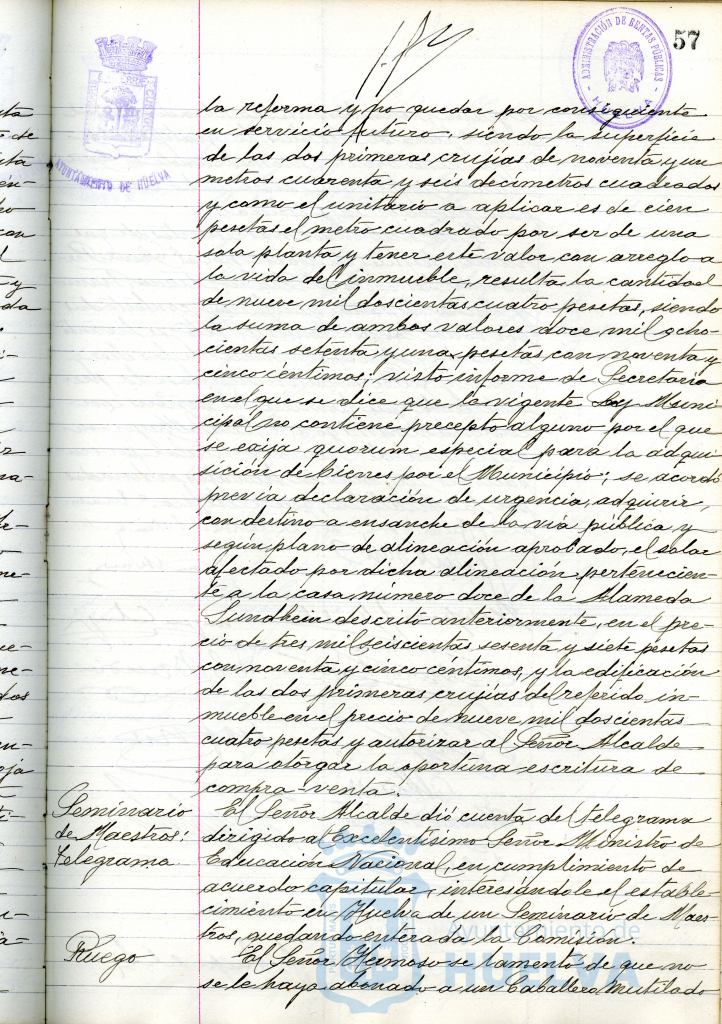 57
ADMINISTRACIÓN DE RENTAS PÚBLICAS
HUELVA
AYUNTAMIENTO DE HUELVA
la reforma y no quedar por consiguiente
en servicio futuro, siendo la superficie
de las dos primeras crujías de noventa y un
metros cuarenta y seis decímetros cuadrados
y como el unitario a aplicar es de cien
pesetas el metro cuadrado por ser de una
sola planta y tener este valor con arreglo a
la vida del inmueble, resulta la cantidad
de nueve mil doscientas cuatro pesetas, siendo
la suma de ambos valores doce mil ocho-
cientas setenta y una pesetas con noventa y
cinco céntimos; visto informe de Secretaría
en el que se dice que la vigente Ley Muni-
cipal no contiene precepto alguno por el que
se exija quorum especial para la adqui-
sición de bienes por el Municipio; se acordó
previa declaración de urgencia, adquirir,
con destino a ensanche de la vía pública y
según plano de alineación aprobado, el solar
afectado por dicha alineación pertenecien-
te a la casa número doce de la Alameda
Sundhein descrito anteriormente, en el pre-
cio de tres mil seiscientas sesenta y siete pesetas
con noventa y cinco céntimos, y la edificación
de las dos primeras crujías del referido in-
mueble en el precio de nueve mil doscientas
cuatro pesetas y autorizar al Señor Alcalde
para otorgar la oportuna escritura de
compra-venta.
Seminario
de Maestros:
telegrama
El Señor Alcalde dió cuenta de telegrama
dirigido al Excelentísimo Señor Ministro de
Educación Nacional, en cumplimiento de
acuerdo capitular, interesándole el estable-
cimiento en Huelva de un Seminario de Maes-
tros, quedando enterada la Comisión.
Ruego
El Señor Hermoso se lamentó de que no
se le haya abonado a un Caballero Mutilado
Ayuntamiento de
HUELVA